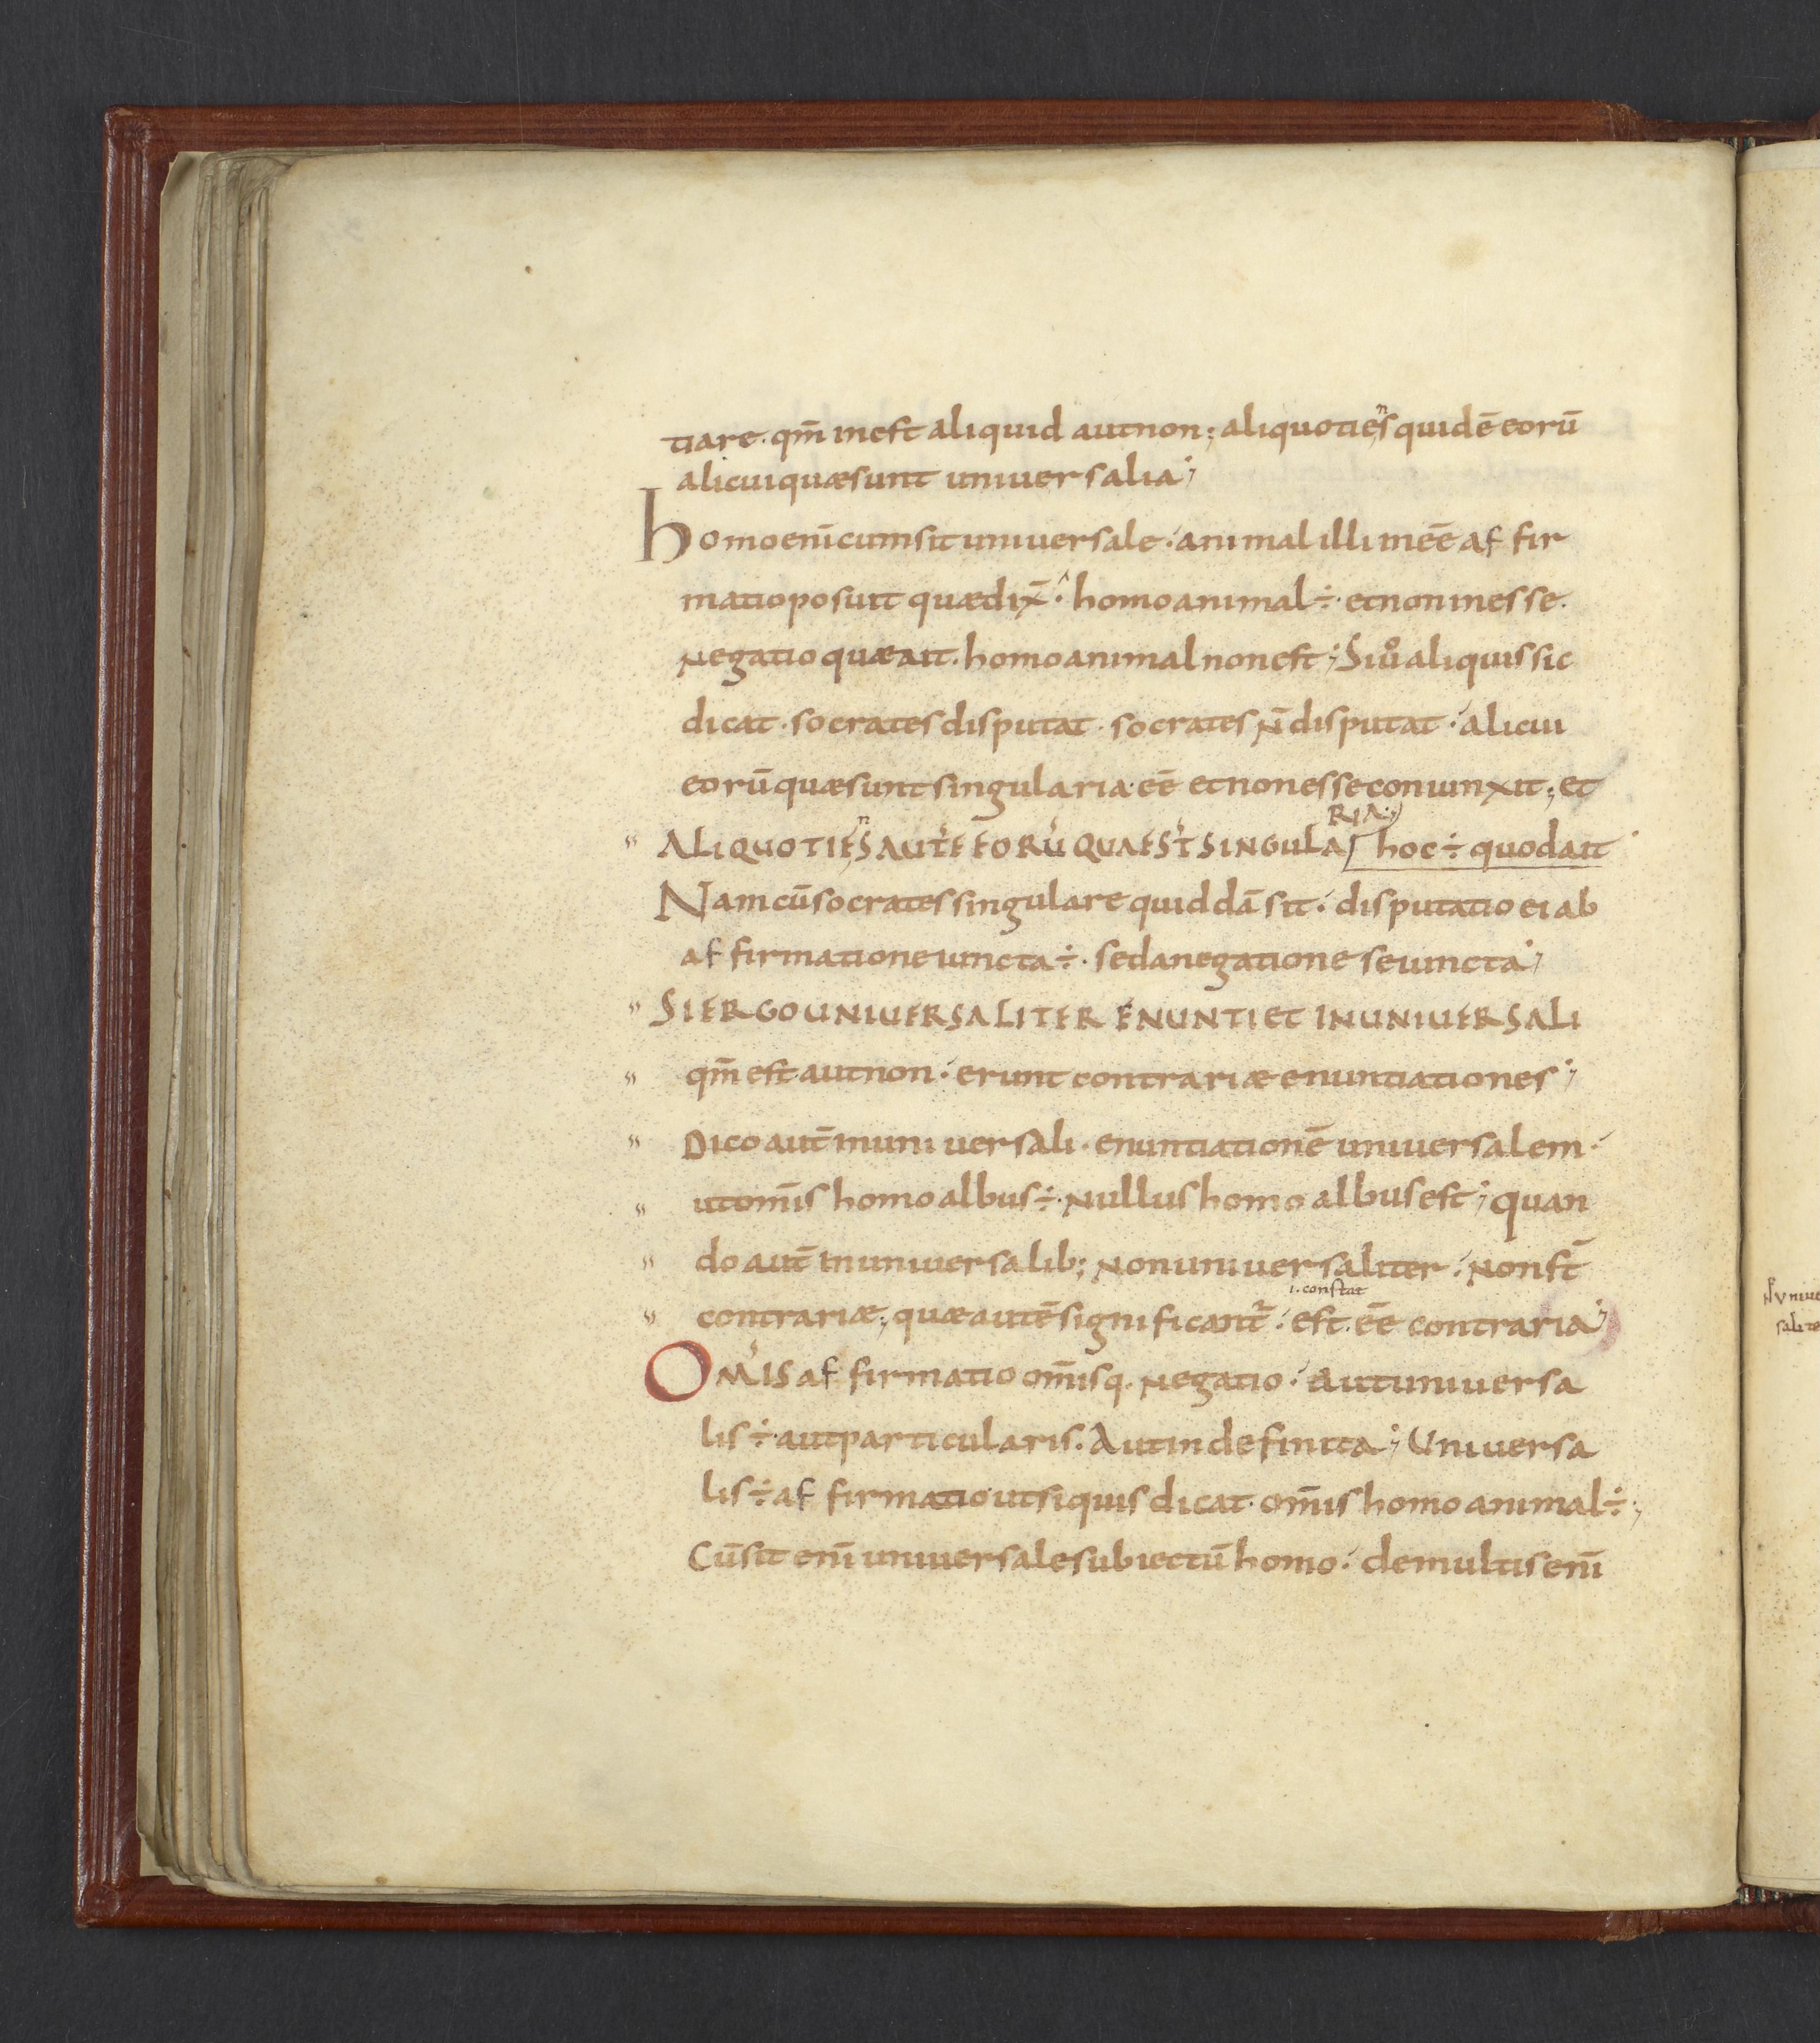 tiare. qm̄ inest aliquid aut non; aliquotiens quidē eorū
alicui quae sunt uniuersalia;
homo enī cum sit uniuersale. animal illi inēe affir
matio posuit quae dix̄. homo animal÷. et non inesse.
Negatio quae ait. homo animal non est; Si uͦ aliquis sic
dicat. socrates disputat. socrates n̄ disputat. alicui
eorū quae sunt singularia ēe et non esse coniunxit; et
RIA;
" ALIQUOTIEnS AUTE EORU QUAE ST SINGULA hoc÷ quod ait
Nam cū socrates singulare quiddā sit. disputatio ei ab
affirmatione iuncta÷. sed a negatione seiuncta;
" SI ERGO UNIUERSALITER ENUNTIET IN UNIUERSALI
" qm̄ est aut non. erunt contrariae enuntiationes;
" Dico aut̄ in uniuersali. enuntiationē uniuersalem.
" ut om̄is homo albus÷. Nullus homo albus est; quan
" do aut̄ in uniuersalib; Non uniuersaliter. Non st̄
i. constat
" contrariae; quae autē significant̄. est. ēe contraria;
OMIS affirmatio om̄isq. Negatio. Aut uniuersa
lis÷ aut particularis. Aut indefinita; Uniuersa
lis÷ affirmatio ut si quis dicat. om̄is homo animal÷;
Cū sit enī uniuersale subiectū homo. de multis enī